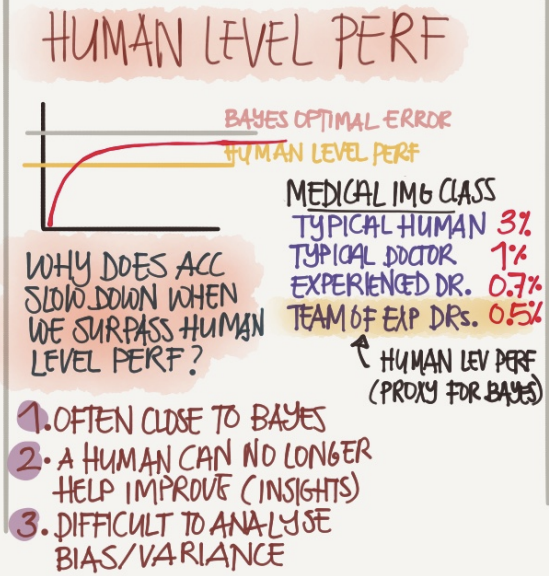 HUMAN LEVEL PERF
BAYES OPTIMAL ERROR
HUMAN LEVEL PERF
MEDICAL IMG CLASS
TYPICAL HUMAN 3%
TYPICAL DOCTOR 1%
EXPERIENCED DR. 0.7%
TEAM OF EXP DRS. 0.5%
HUMAN LEV PERF
(PROXY FOR BAYES)
WHY DOES ACC
SLOW DOWN WHEN
WE SURPASS HUMAN
LEVEL PERF?
1. OFTEN CLOSE TO BAYES
2. A HUMAN CAN NO LONGER
HELP IMPROVE (INSIGHTS)
3. DIFFICULT TO ANALYSE
BIAS/VARIANCE